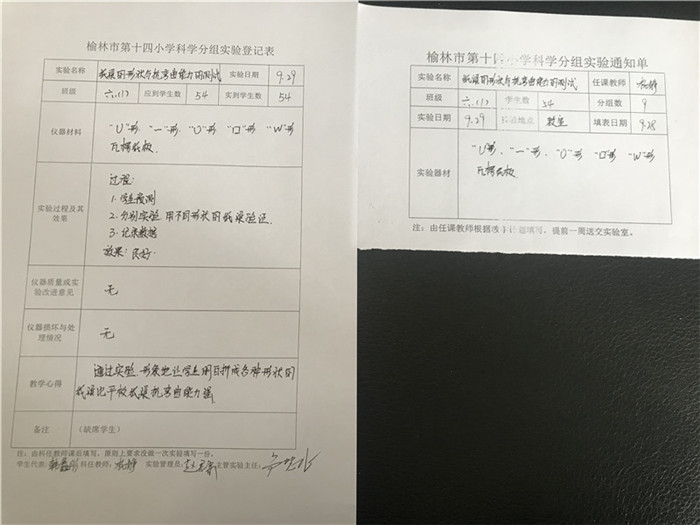 榆林市第十四小学科学分组实验登记表
实验名称 纸梁的形状与抗弯曲能力的测试 实验日期 9.29
班级 六.(1) 应到学生数 54 实到学生数 54
仪器材料 "U"形 "一"形 "O"形 "口"形 "W"形
瓦楞纸板.
实验过程及其效果
过程:
1. 学生预测
2. 分别实验 用不同形状的纸梁验证.
3. 记录数据
效果: 良好.
仪器质量或实验改进意见 无
仪器损坏与处理情况 无
教学心得 通过实验.形象地让学生明白折成各种形状的
纸梁比平板纸梁抗弯曲能力强.
备注 (缺席学生)
注：由科任教师课前填写，原则上要求没做一次实验填写一份。
学生代表: 科任教师: 实验管理员: 主管实验主任:
榆林市第十四小学科学分组实验通知单
实验名称 纸梁的形状与抗弯曲能力的测试 任课教师
班级 六.(1) 学生数 54 分组数 9
实验日期 9.29 实验地点 教室 填表日期 9.28
实验器材 "U"形、"一"形、"O"形 "口"形 "W"形
瓦楞纸板.
注：由任课教师根据教学计划填写，提前一周送交实验室。